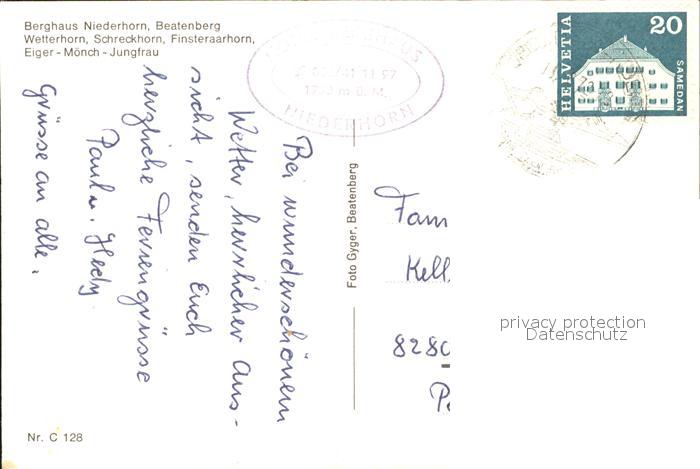 Berghaus Niederhorn, Beatenberg
Wetterhorn, Schreckhorn, Finsteraarhorn,
Eiger - Mönch - Jungfrau
NIEDERHORN
HELVETIA
20
SAMEDAN
Bei wunderschönem
Wetter, herrlicher Aus-
sicht, senden Euch
herzliche Feriengrüsse
Paul u. Hedy
Grüsse an alle.
Foto Gyger, Beatenberg
Fam
Kell
8280
privacy protection
Datenschutz
Nr. C 128